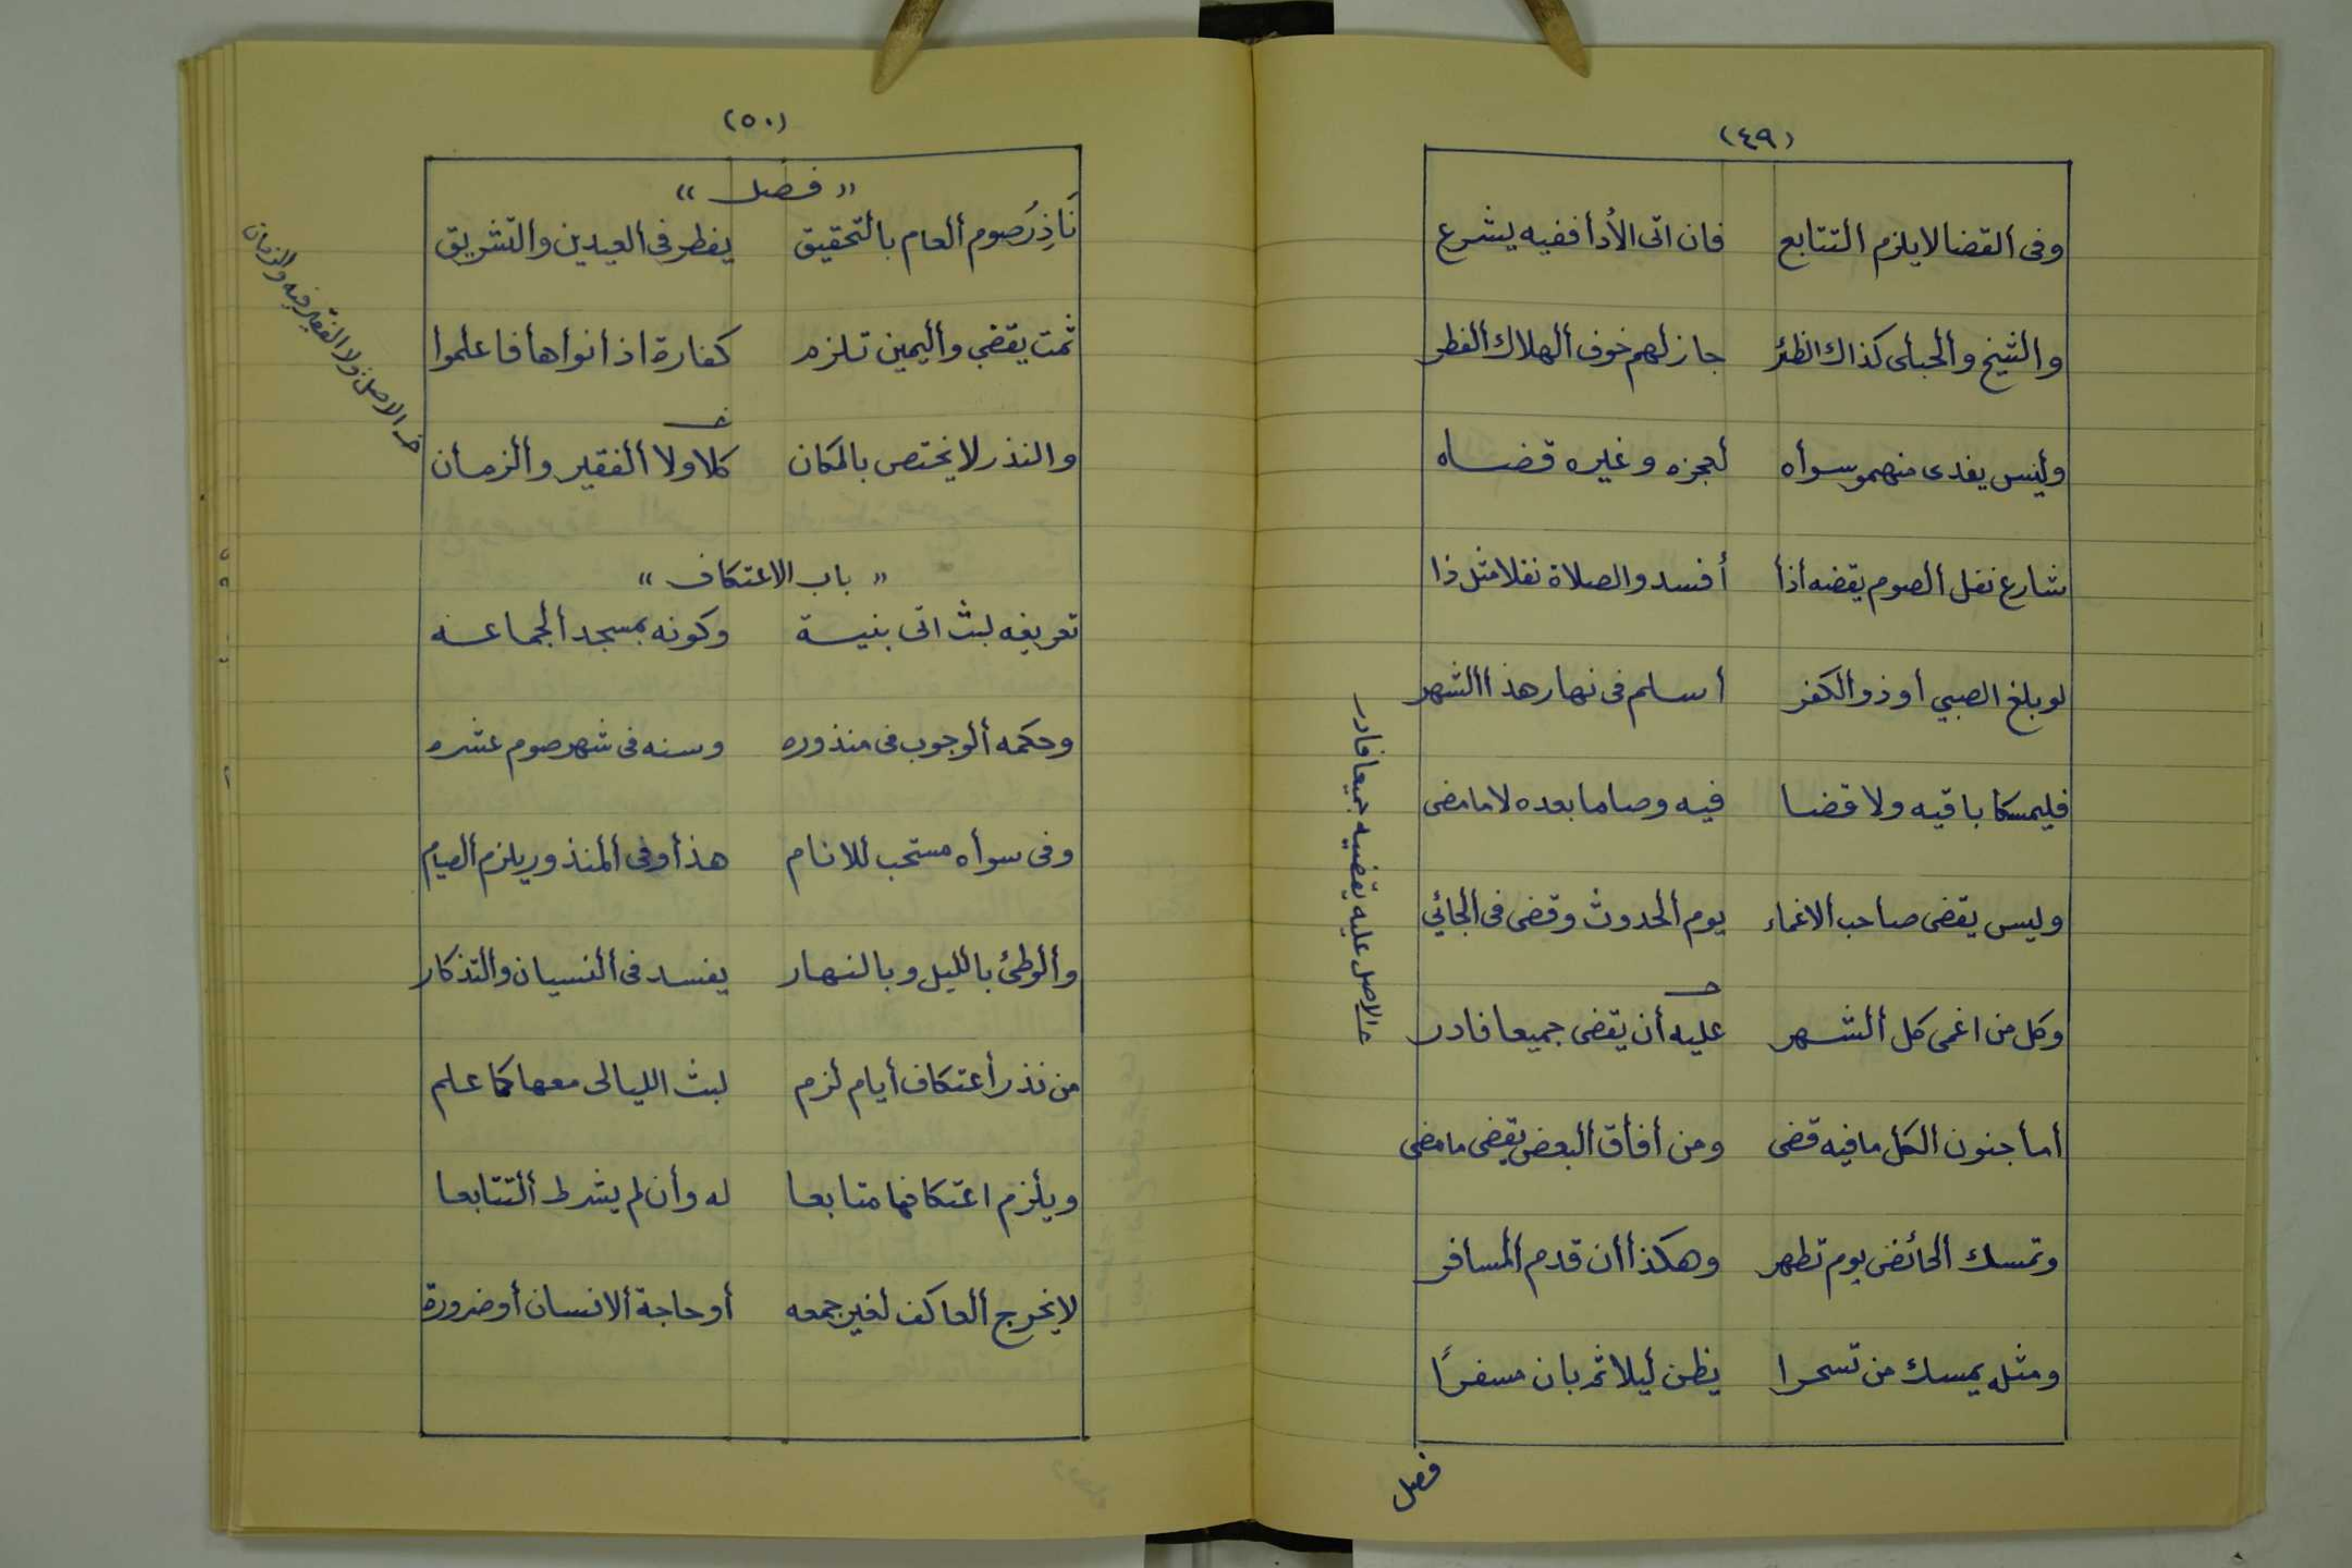 (٤٩)
وفى القضا لا يلزم التتابع فان اتى الأدا ففيه يشرع
والشيخ والحبلى كذاك الظئر جاز لهم خوف الهلاك الفطر
وليس يفدى منهمو سواه لعجزه وغيره قضاه
شارع نفل الصوم يقضه أذا أفسد والصلاة نفلا مثل ذا
لو بلغ الصبي او ذو الكفر أسلم فى نهار هذا الشهر
فليمسكا باقيه ولا قضا فيه وصاما بعده لا ما مضى
وليس يقضى صاحب الاغماء يوم الحدوث وقضى فى الجائي
وكل من اغمى كل الشهر عليه أن يقضى جميعا فادر
أما جنون الكل ما فيه قضى ومن أفاق البعض يقضى ما مضى
وتمسك الحائض يوم تطهر وهكذا أن قدم المسافر
ومثله يمسك من تسحرا يظن ليلا ثم بان مسفرًا
الاصل عليه يقضيه جميعا فادر
فصل
(٥٠)
" فصل "
نَاذِرُ صوم العام بالتحقيق يفطر فى العيدين والتشريق
ثمت يقضي واليمين تلزم كفارة اذا نواها فاعلموا
والنذر لا يختص بالمكان كلا ولا الفقير والزمان
الاصل ولا الفقير فيه والزمان
" باب الاعتكاف "
تعريفه لبث اتى بنية وكونه بمسجد الجماعه
وحكمه الوجوب فى منذوره وسنه فى شهر صوم عشره
وفى سواه مستحب للانام هذا وفى المنذور يلزم الصيام
والوطئ بالليل وبالنهار يفسد فى النسيان والتذكار
من نذر أعتكاف أيام لزم لبث الليالى معها كما علم
ويلزم اعتكافها متابعا له وأن لم يشرط التتابعا
لا يخرج العاكف لغير جمعه أو حاجة الانسان أو ضرورة